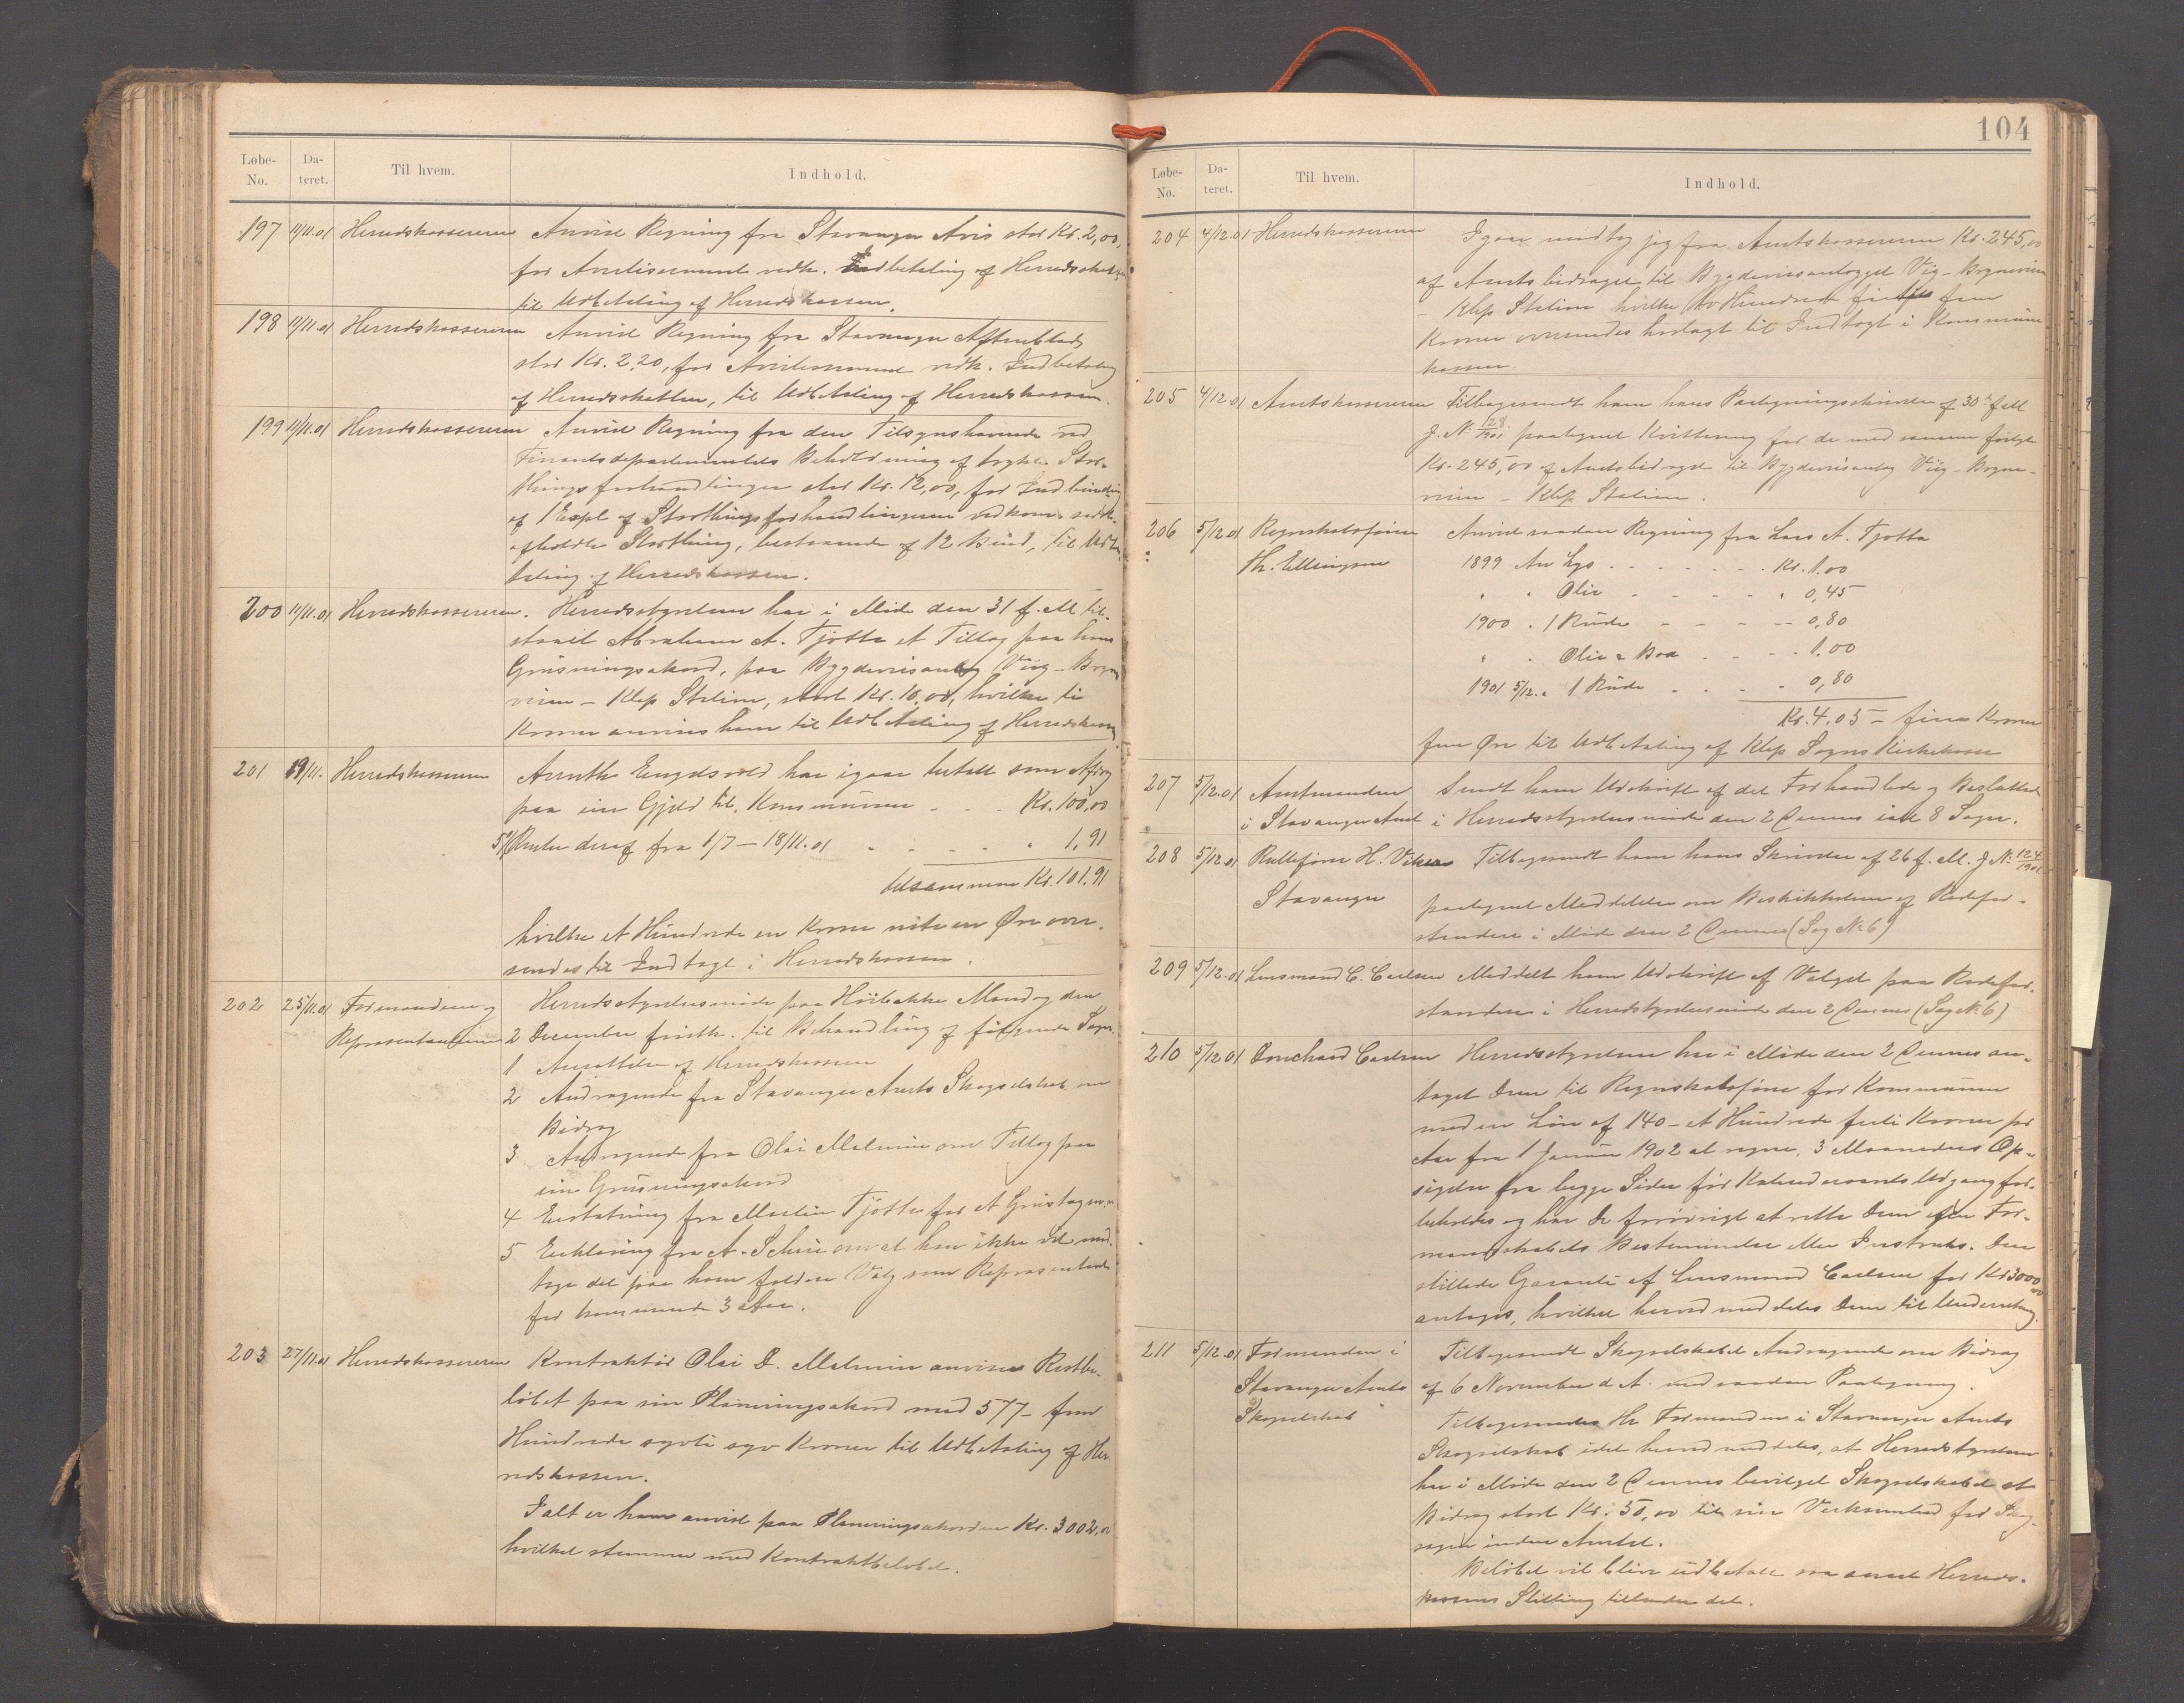 Løbe-
No.
Da-
teret.
Til hvem.
Indhold.
197 11/11.01 Herredskassereren Anvist Regning fra Stavanger Avis stor Kr. 2,00,
for Avertissement vedk. Indbetaling af Herredsskatten
til Udbetaling af Herredskassen.
198 11/11.01 Herredskassereren Anvist Regning fra Stavanger Aftenblad,
stor Kr. 2,20, for Avertissement vedk. Indbetaling
af Herredsskatten, til Udbetaling af Herredskassen.
199 11/11.01 Herredskassereren Anvist Regning fra den Tilsynshavende ved
Finantsdepartementets Beholdning af trykte Stor-
thingsforhandlinger stor Kr. 12,00, for Indbinding
af 1 Expl. af Storthingsforhandlingerne vedkom. sidst
afholdte Storthing, bestaaende af 12 Bind, til Udbe-
taling af Herredskassen.
200 11/11.01 Herredskassereren. Herredsstyrelsen har i Møde den 31 f. M til-
staaet Abraham A. Tjøtta et Tillæg paa hans
Grusningsakord, paa Bygdeveisanlæg Viig - Bryne-
veien - Klep Station, stort Kr. 10,00, hvilke ti
Kroner anvises ham til Udbetaling af Herredskassen
201 19/11. Herredskassereren Arnth Engelsvold har igaar betalt som Afdrag
paa sin Gjæld til Kommunen - - Kr. 100,00
5% Rente deraf fra 1/7 - 18/11.01 " - - - " 1,91
tilsammen Kr. 101,91
hvilke et Hundrede en Krone nitien Øre over-
sendes til Indtægt i Herredskassen.
202 25/11.01 Formændene og Herredsstyrelsesmøde paa Høibakke Mandag den
Repræsentanterne 2 December førstk. til Behandling af følgende Sager.
1 Ansættelse af Herredskasserer
2 Andragende fra Stavanger Amts Skogselskab om
Bidrag
3 Andragende fra Olai Malmin om Tillæg paa
sin Grusningsakord
4 Erstatning fra Martin Tjøtta for et Grustag m.m.
5 Erklæring fra A. Schie om at han ikke vil mod-
tage det paa ham faldne Valg som Repræsentant
for kommende 3 Aar.
203 27/11.01 Herredskassereren Kontraktør Olai D. Malmin anvises Restbe-
løbet paa sin Planeringsakord med 577 - fem
Hundrede sytti syv Kroner til Udbetaling af Her-
redskassen.
Ialt er ham anvist paa Planeringsakorden Kr. 3002,00
hvilket stemmer med Kontraktbeløbet.
104
Løbe-
No.
Da-
teret.
Til hvem.
Indhold.
204 4/12.01 Herredskassereren Igaar modtog jeg fra Amtskassereren Kr. 245,00
af Amtsbidraget til Bygdeveisanlægget Viig - Bryneveien
- Klep Station hvilke to Hundrede firti fem
Kroner oversendes vedlagt til Indtægt i Kommune-
kassen.
205 4/12.01 Amtskassereren Tilbagesendt ham hans Paategningsskrivelse af 30te f. M
J. No 128/1901 paategnet Kvittering for de med samme fulgte
Kr. 245,00 af Amtsbidraget til Bygdeveisanlæg Viig - Bryne-
veien - Klep Station.
206 5/12.01 Regnskabsfører Anvist saadan Regning fra Lars A. Tjøtta
Th. Ellingsen 1899 An Lys - - - - - Kr. 1.00
" " Olie - - - - " 0,45
1900 " 1 Rude - - - - 0,80
" " Olie & Boa - - - 1.00
1901 5/12. " 1 Rude - - - - 0,80
Kr. 4.05 - fire Kroner
fem Øre til Udbetaling af Klep Sogns Kirkekasse
207 5/12.01 Amtmanden Sendt ham Udskrift af det Forhandlede og Besluttede
i Stavanger Amt i Herredsstyrelsesmøde den 2 Dennes ialt 8 Sager.
208 5/12.01 Rullefører H. Tilbagesendt ham hans Skrivelse af 26 f. M. J No 124/1901
Stavanger paategnet Meddelelse om Beskikkelsen af Rodefor-
standere i Møde den 2 Dennes (Sag No 6)
209 5/12.01 Lensmand C. Carlsen Meddelt ham Udskrift af Valget paa Rodefor-
standere i Herredsstyrelsesmøde den 2 Dennes (Sag No 6)
210 5/12.01 Bonchard Carlsen Herredsstyrelsen har i Møde den 2 Dennes an-
taget Dem til Regnskabsfører for Kommunen
med en Løn af 140 - et Hundrede firti Kroner pr
Aar fra 1 Januar 1902 at regne. 3 Maaneders Op-
sigelse fra begge Sider før Kalenderaarets Udgang for-
beholdes og har De forøvrigt at rette Dem efter For-
mandskabets Bestemmelse eller Instruks. Den
stillede Garanti af Lensmand Carlsen for Kr 3000,00
antages, hvilket herved meddeles Dem til Underretning.
211 5/12.01 Formanden i Tilbagesendt Skogselskabets Andragende om Bidrag
Stavanger Amts af 6 November d. A. med saadan Paategning.
Skogselskab Tilbagesendes Hr Formanden i Stavanger Amts
Skogselskab idet herved meddeles, at Herredsstyrelsen
har i Møde den 2 Dennes bevilget Skogselskabet et
Bidrag stort Kr. 50,00 til sin Virksomhed for Skog-
sagen inden Amtet.
Beløbet vil blive udbetalt saasnart Herreds-
kassens Stilling tillader det.